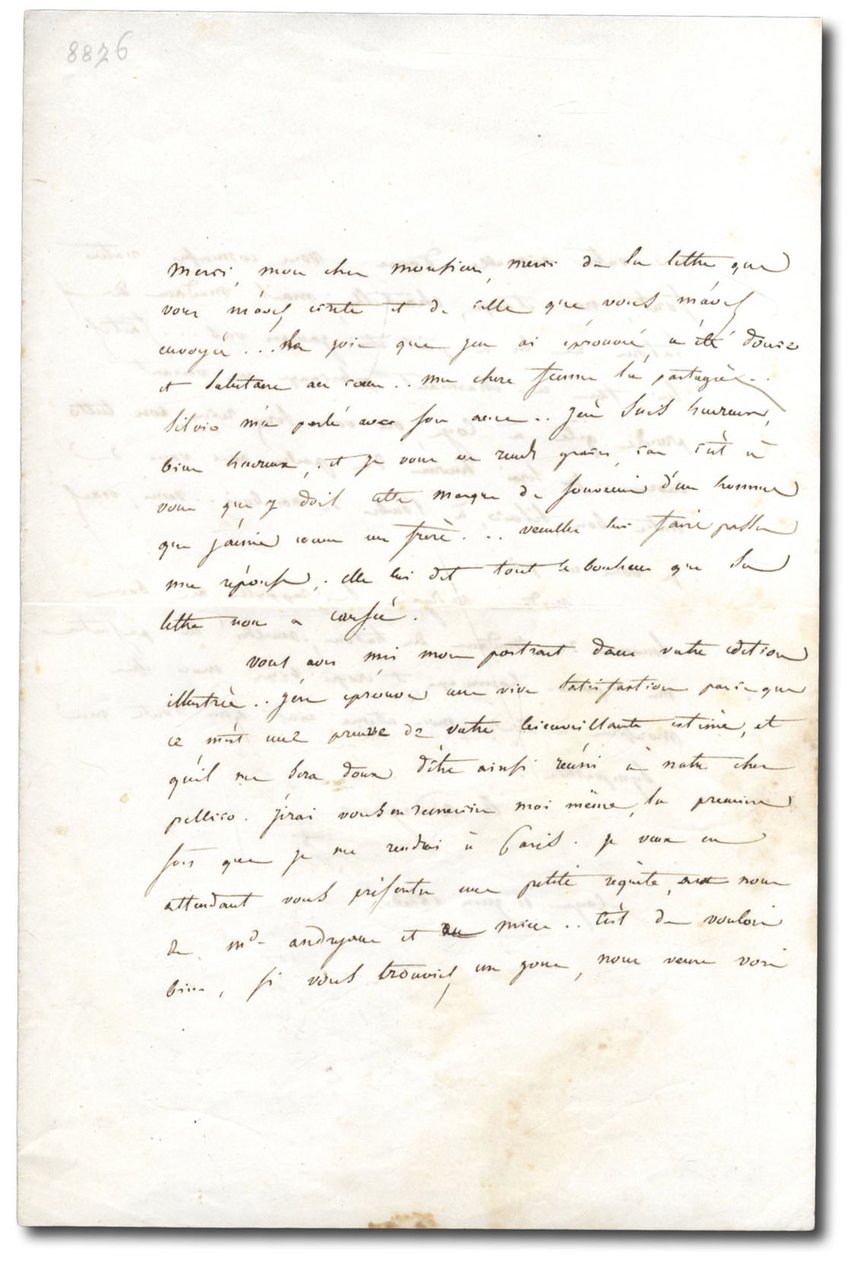 8826
merci, mon cher monsieur, merci de la lettre que
vous m'avez écrite et de celle que vous m'avez
envoyée... La joie que j'en ai éprouvé a été douce
et salutaire au cœur.. ma chere femme l'a partagée..
Silvio m'a parlé avec son ame.. j'en suis heureux,
bien heureux, et je vous en rends graces, car c'est à
vous que je dois cette marque de souvenir d'un homme
que j'aime comme un frère... veuillez lui faire passer
ma réponse; elle lui dit tout le bonheur que sa
lettre nous a causé.
vous avez mis mon portrait dans votre édition
illustrée.. j'en éprouve une vive satisfaction parce que
ce m'est une preuve de votre bienveillante estime, et
qu'il me sera doux d'être ainsi réuni à notre cher
pellico. j'irai vous en remercier moi même, la premiere
fois que je me rendrai à Paris. je veux en
attendant vous présenter une petite requête, au nom
de md andryane et au mien.. c'est de vouloir
bien, si vous trouviez un jour, nous venir voir